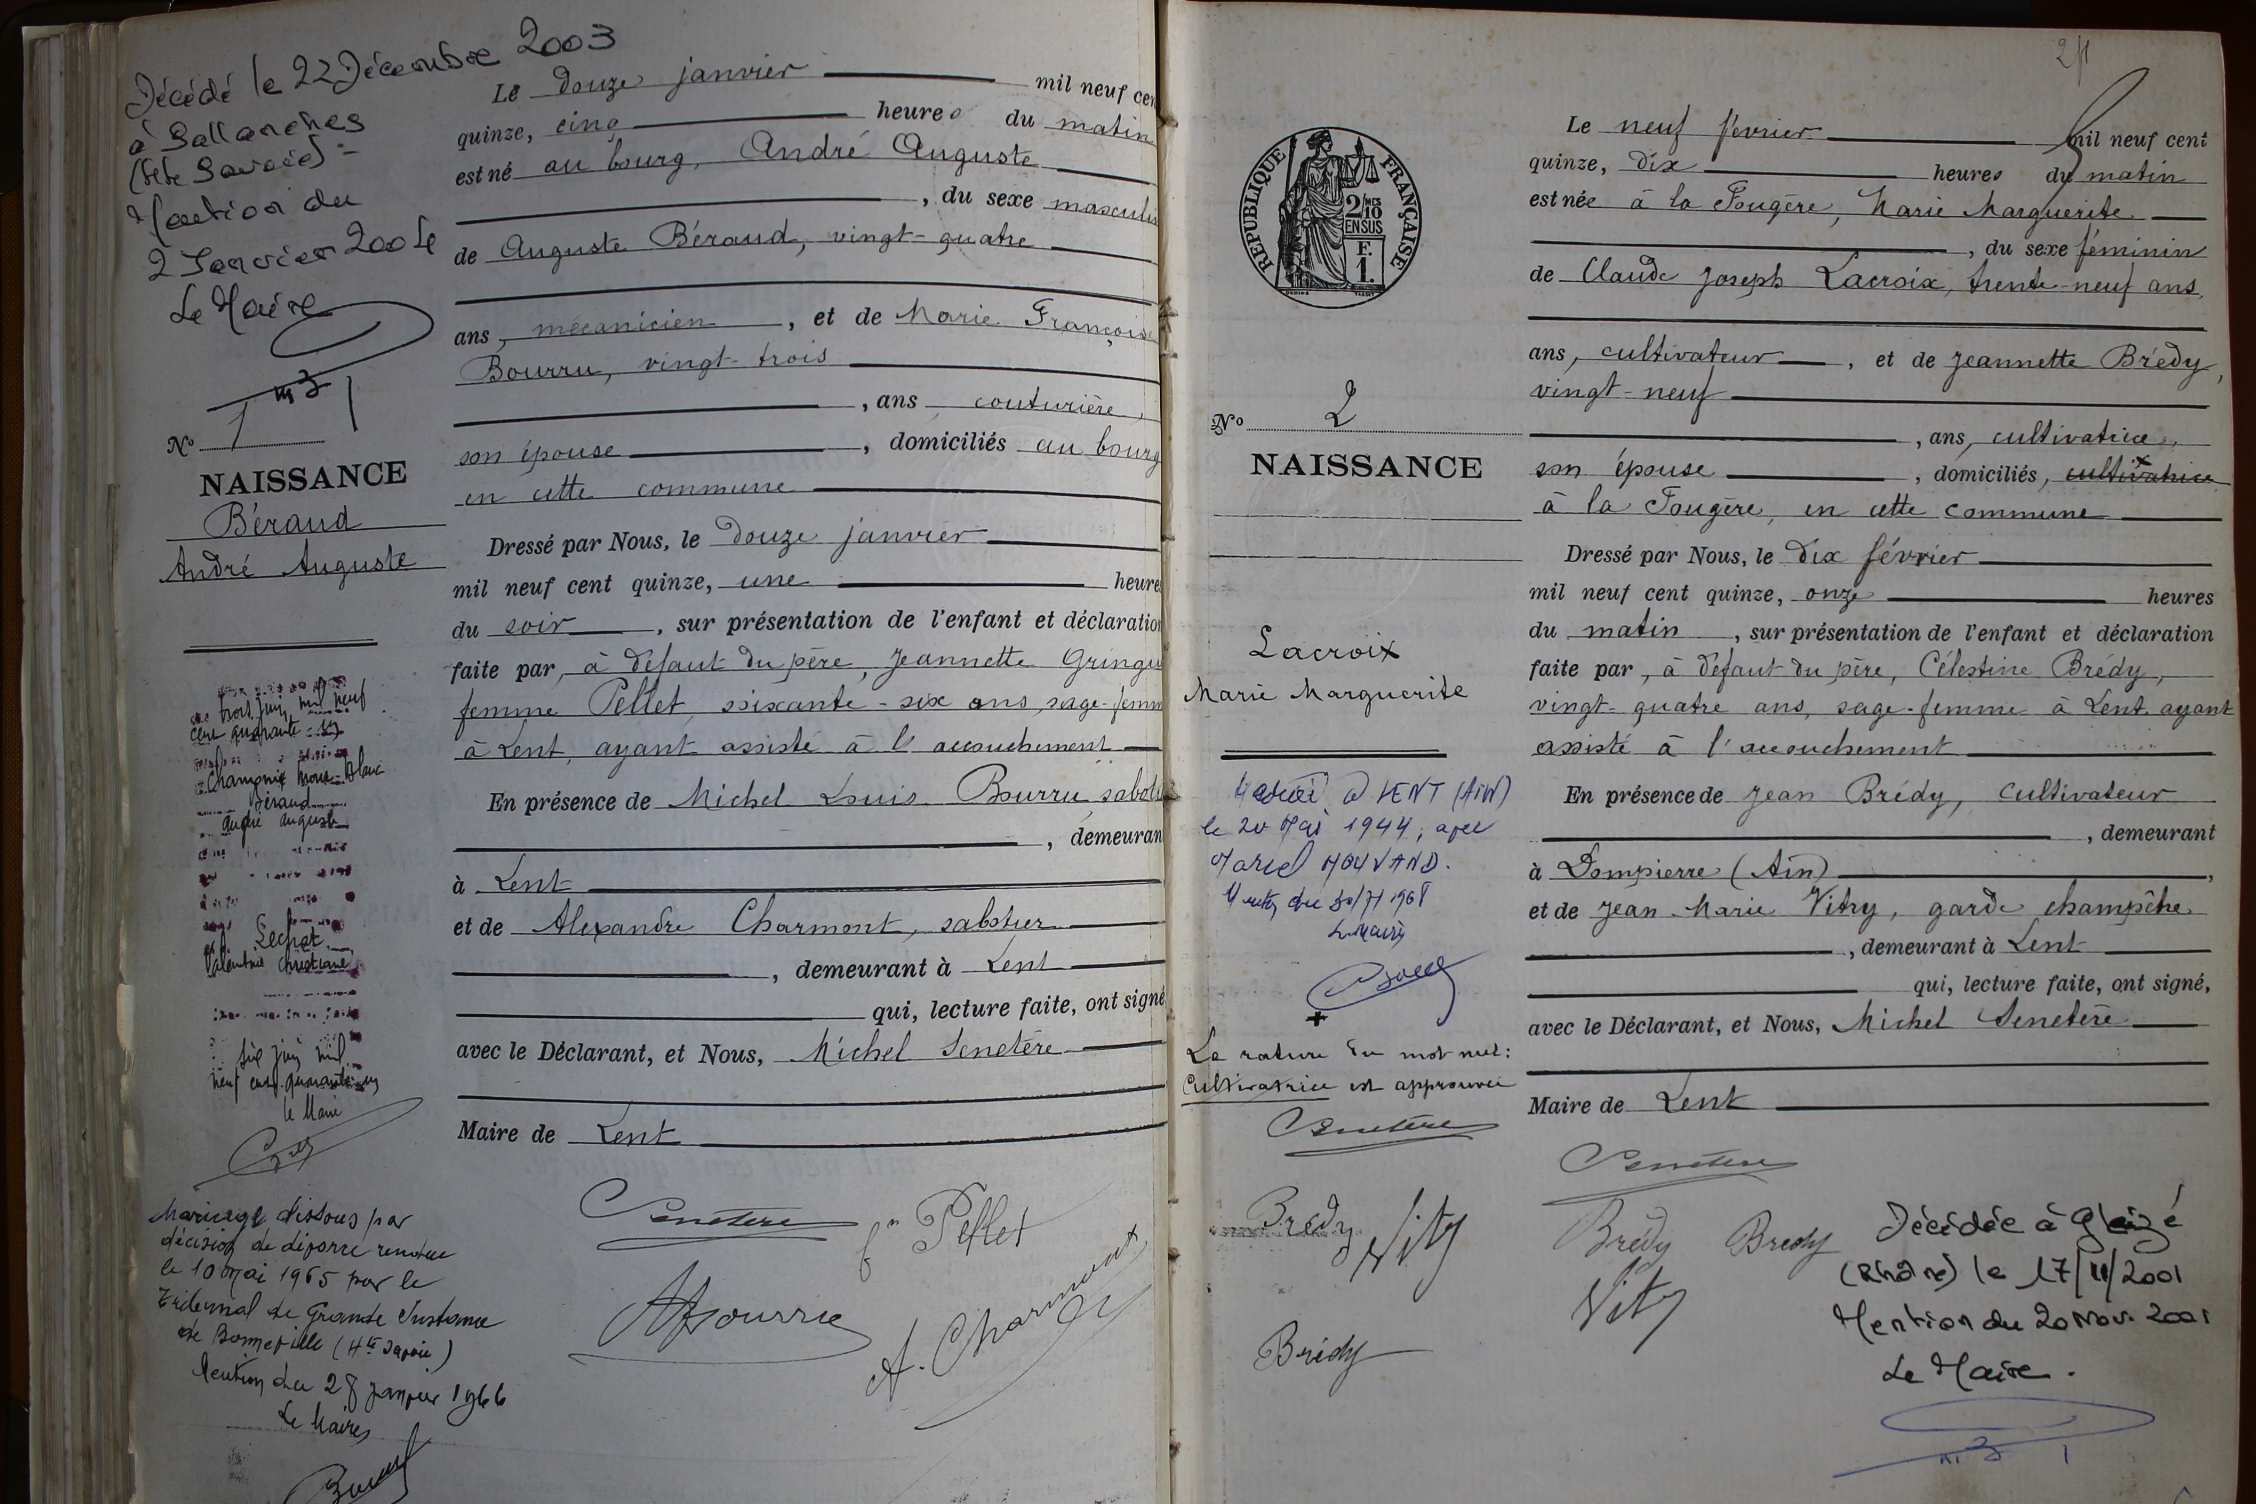 Décédé le 22 Décembre 2003
à Sallanches
(Hte Savoie)
Mention du
2 Janvier 2004
Le Maire
No 1
NAISSANCE
Béraud
André Auguste
trois juin mil neuf
cent quarante un
Chamonix Mont-Blanc
Béraud
André Auguste
Sechet
Valentine Christiane
six juin mil
neuf cent quarante un
le Maire
Mariage dissous par
décision de divorce rendue
le 10 mai 1965 par le
Tribunal de Grande Instance
de Bonneville (Hte Savoie)
Mention du 28 janvier 1966
Le Maire,
Le douze janvier mil neuf cen
quinze, cinq heures du matin
est né au bourg, André Auguste
, du sexe masculin
de Auguste Béraud, vingt-quatre
ans, mécanicien, et de Marie Françoise
Bourru, vingt-trois
, ans couturière,
son épouse, domiciliés au bourg
en cette commune
Dressé par Nous, le douze janvier
mil neuf cent quinze, une heure
du soir, sur présentation de l'enfant et déclaration
faite par, à défaut du père, Jeannette
femme Pellet, soixante-six ans, sage-femm
à Lent, ayant assisté à l'accouchement
En présence de Michel Louis Bourru sabot
, demeuran
à Lent
et de Alexandre Charmont, sabotier
, demeurant à Lent
qui, lecture faite, ont signé
avec le Déclarant, et Nous, Michel Senetère
Maire de Lent
Senetère
fe Pellet
Bourru
A. Charmont
REPUBLIQUE FRANÇAISE
2/10
EN SUS
F.
1.
No 2
NAISSANCE
Lacroix
Marie Marguerite
Mariée à LENT (AIN)
le 20 Mai 1944, avec
Marcel
Le Maire
+
La rature du mot nul:
Cultivatrice est approuvée
Senetère
Brédy Vitry
Brédy
Le neuf février mil neuf cent
quinze, dix heures du matin
est née à la Fougère, Marie Marguerite
, du sexe féminin
de Claude Joseph Lacroix, trente-neuf ans,
ans, cultivateur, et de Jeannette Brédy,
vingt-neuf
, ans, cultivatrice,
son épouse, domiciliés, cultivatrice
à la Fougère, en cette commune
Dressé par Nous, le dix février
mil neuf cent quinze, onze heures
du matin, sur présentation de l'enfant et déclaration
faite par, à défaut du père, Célestine Brédy,
vingt-quatre ans, sage-femme à Lent ayant
assisté à l'accouchement
En présence de Jean Brédy, cultivateur
, demeurant
à Dompierre (Ain),
et de Jean Marie Vitry, garde champêtre
, demeurant à Lent
qui, lecture faite, ont signé,
avec le Déclarant, et Nous, Michel Senetère
Maire de Lent
Senetère
Brédy Bredy
Vitry
Décédée à Gleizé
(Rhône) le 17/11/2001
Mention du 20 Nov. 2001
Le Maire.